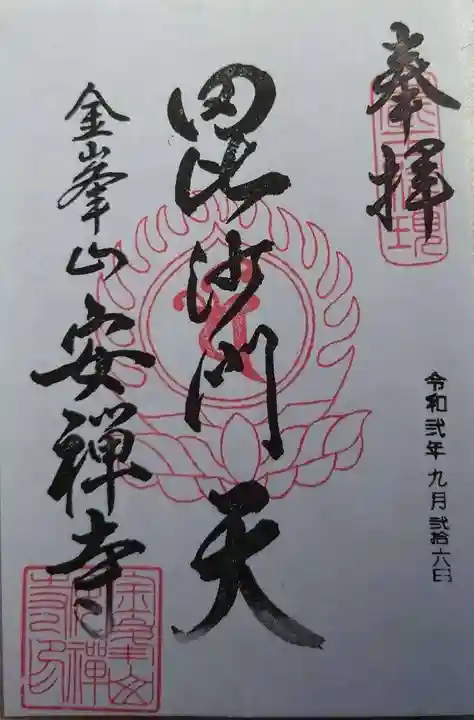 奉拝
令和弐年 九月 弐拾六日
毘沙門天
金峯山安禅寺